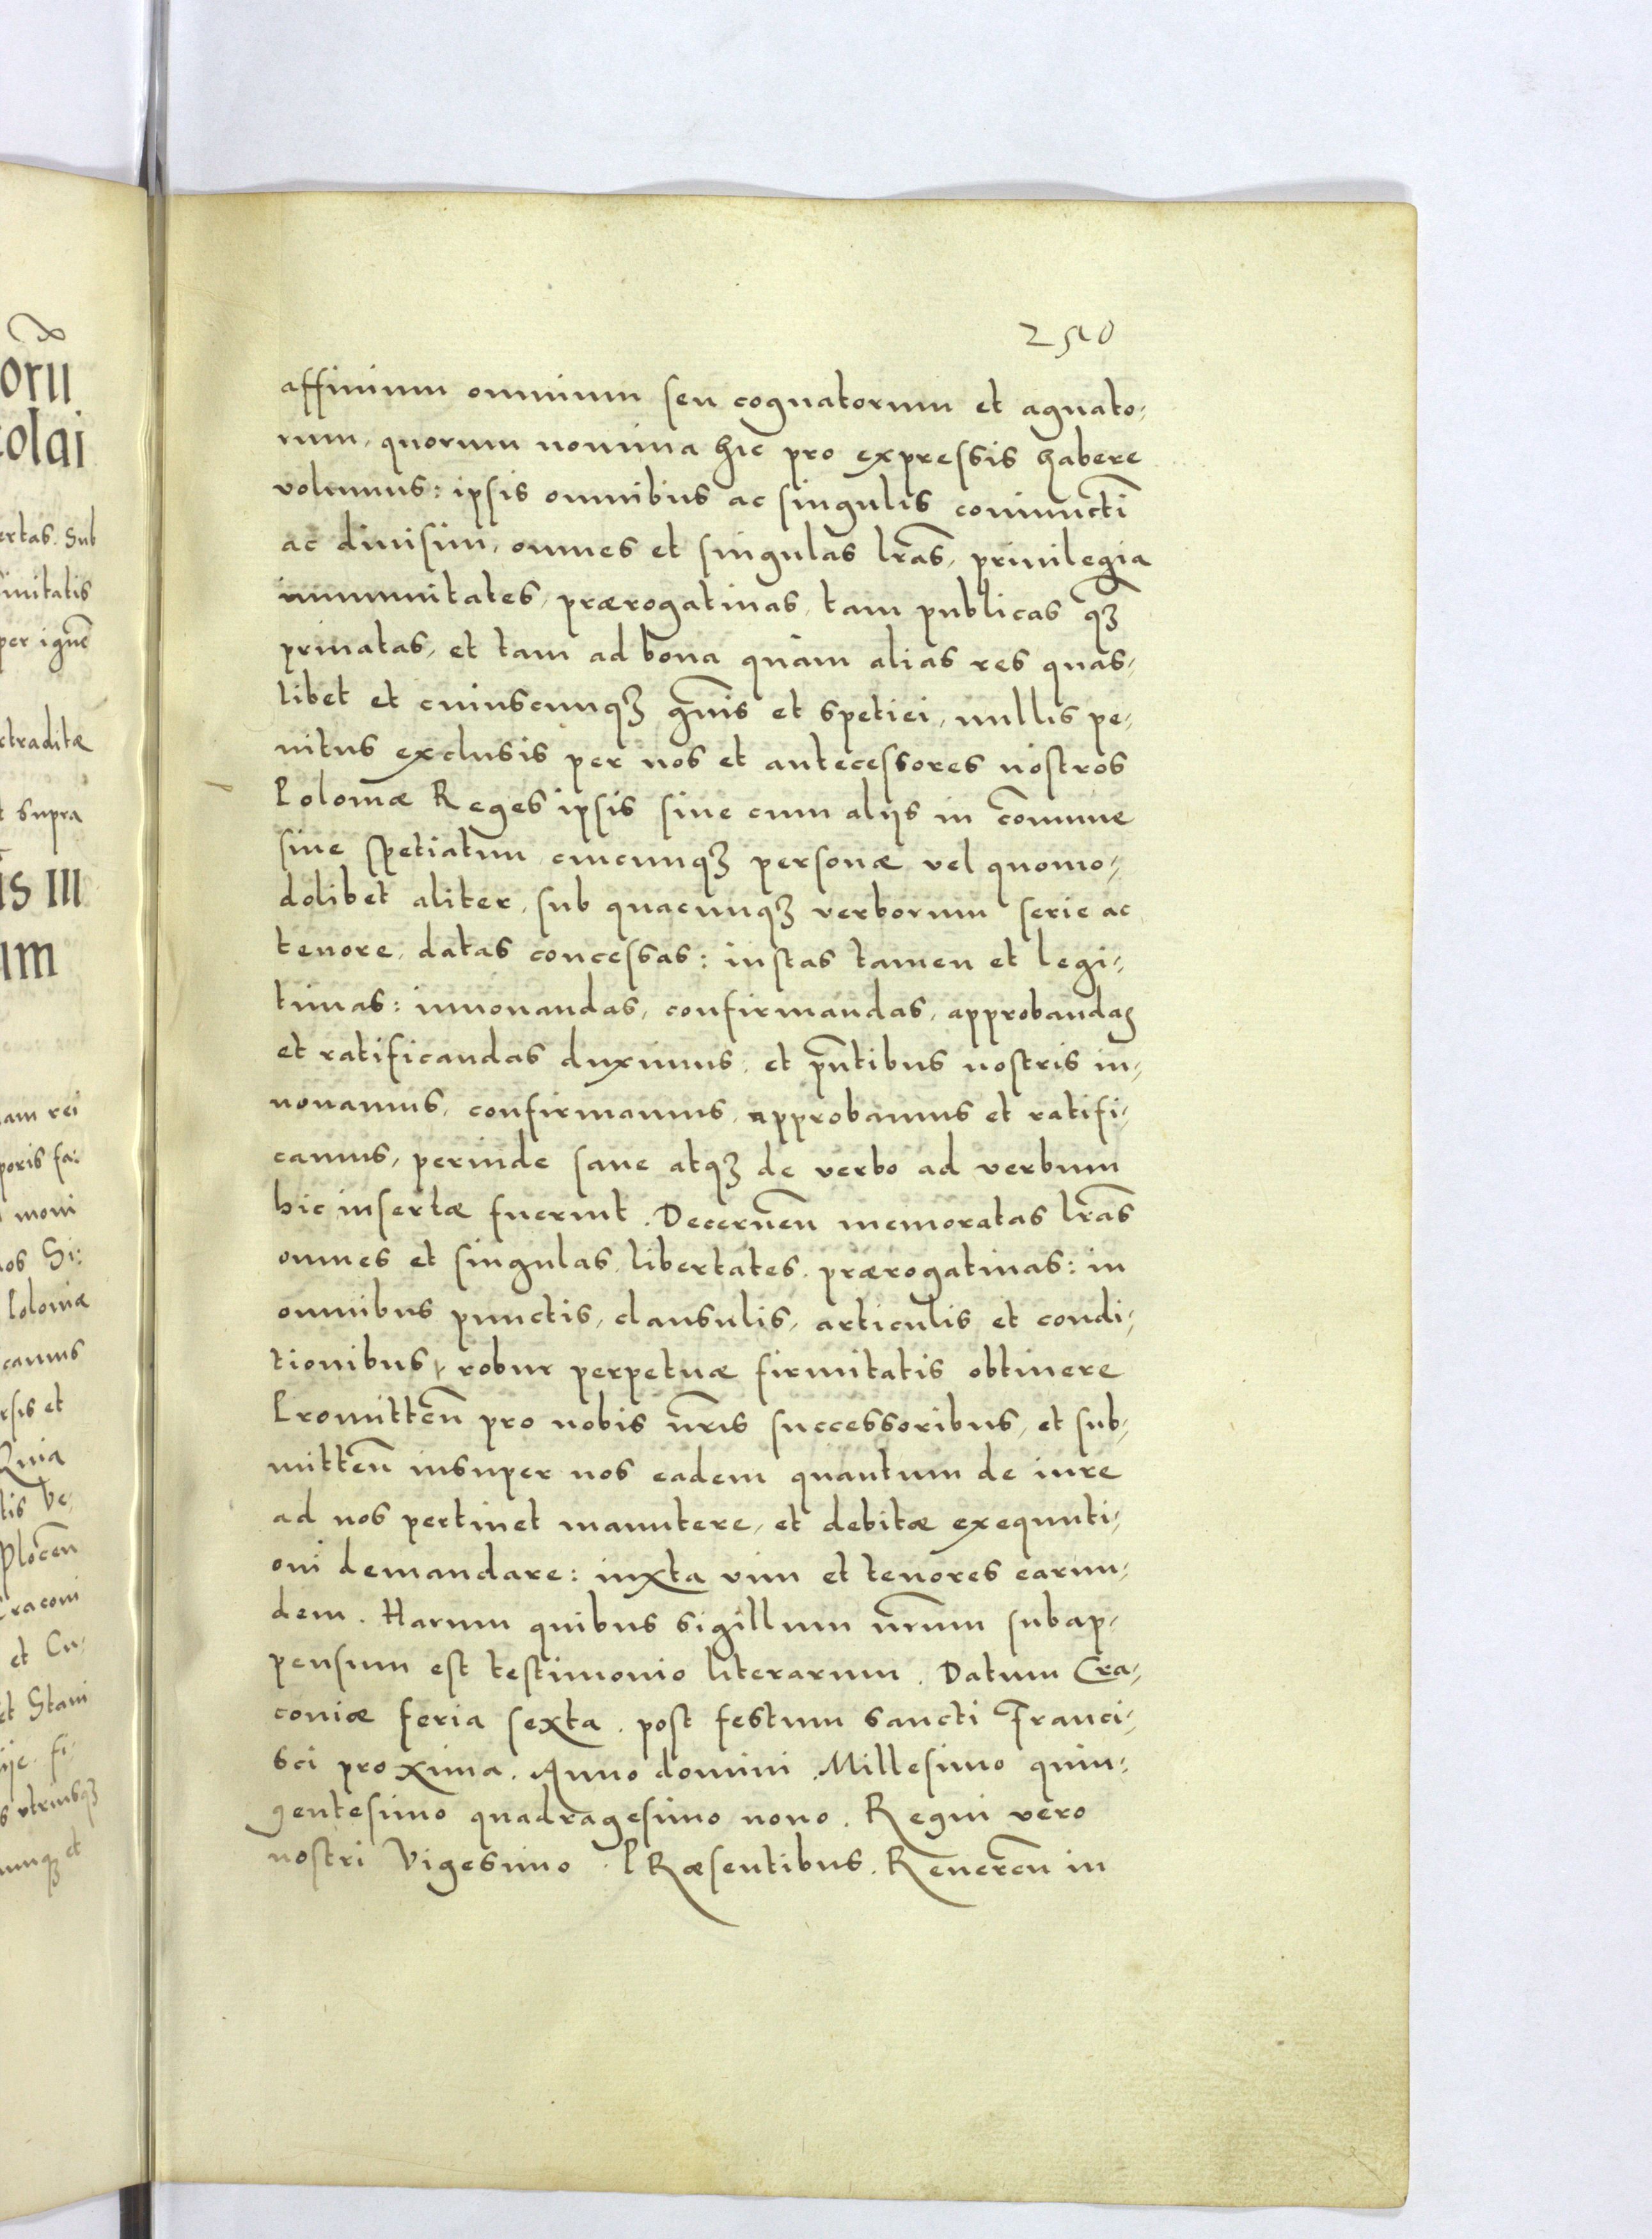 250
affinium omnium seu cognatorum et agnato,
rum, quorum nomina hic pro expressis habere
volumus: ipsis omnibus ac singulis coniunctī
ac diuisim, omnes et singulas lr̄as, priuilegia
immunitates, prærogatiuas, tam publicas qꝫ
priuatas, et tam ad bona quàm alias res quas,
libet et cuiuscunqꝫ gn̄is et spetiei, nullis pe,
nitus exclusis per nos et antecessores nostros
Poloniæ Reges ipsis siue cum alijs in com̄une
siue spetiatim, cuicunqꝫ personæ vel quomo,
dolibet aliter, sub quacunqꝫ verborum serie ac
tenore, datas concessas: iustas tamen et legi,
timas: innouandas, confirmandas, approbandas
et ratificandas duximus, et pn̄tibus nostris in,
nouamus, confirmamus, approbamus et ratifi,
camus, perinde sane atqꝫ de verbo ad verbum
hic insertæ fuerint. Decernen̄ memoratas lr̄as
omnes et singulas, libertates, prærogatiuas: in
omnibus punctis, clausulis, articulis et condi,
tionibus, robur perpetuæ firmitatis obtinere
Promitten̄ pro nobis nr̄is successoribus, et sub,
mitten̄ insuper nos eadem quantum de iure
ad nos pertinet manutere, et debitæ exequuti,
oni demandare: iuxta vim et tenores earun,
dem. Harum quibus sigillum nr̄um subap,
pensum est testimonio literarum. Datum Cra,
couiæ feria sexta, post festum sancti Franci,
sci proxima. Anno domini Millesimo quin,
gentesimo quadragesimo nono. Regni vero
nostri Vigesimo. PRæsentibus. Reueren̄ in